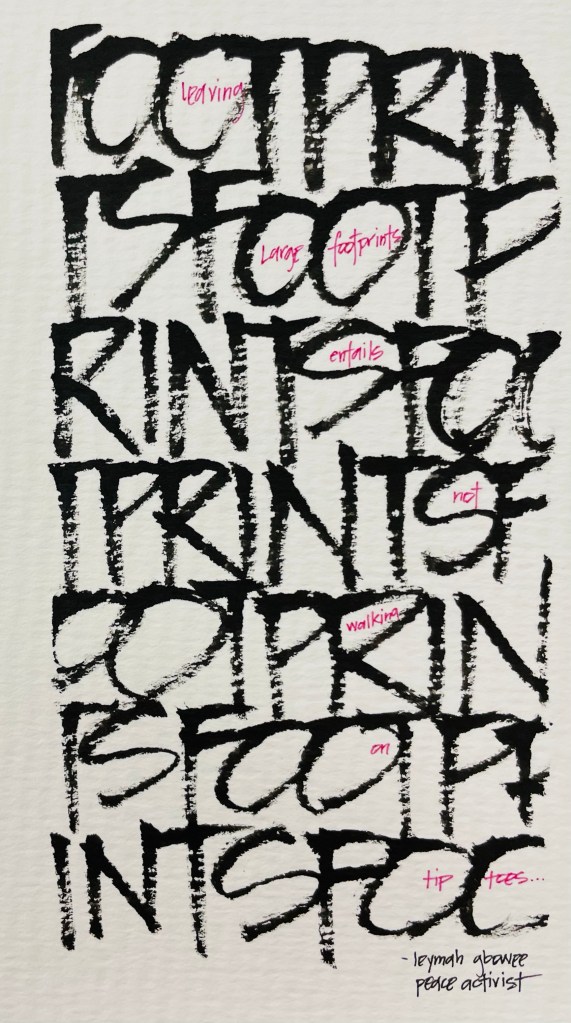 FOOTPRIN
leaving
TSFOOTP
Large footprints
RINTSFOO
entails
TPRINTSF
not
OOTPRIN
walking
TSFOOTP
on
INTSFOO
tip toes...
-leymah gbowee
peace activist